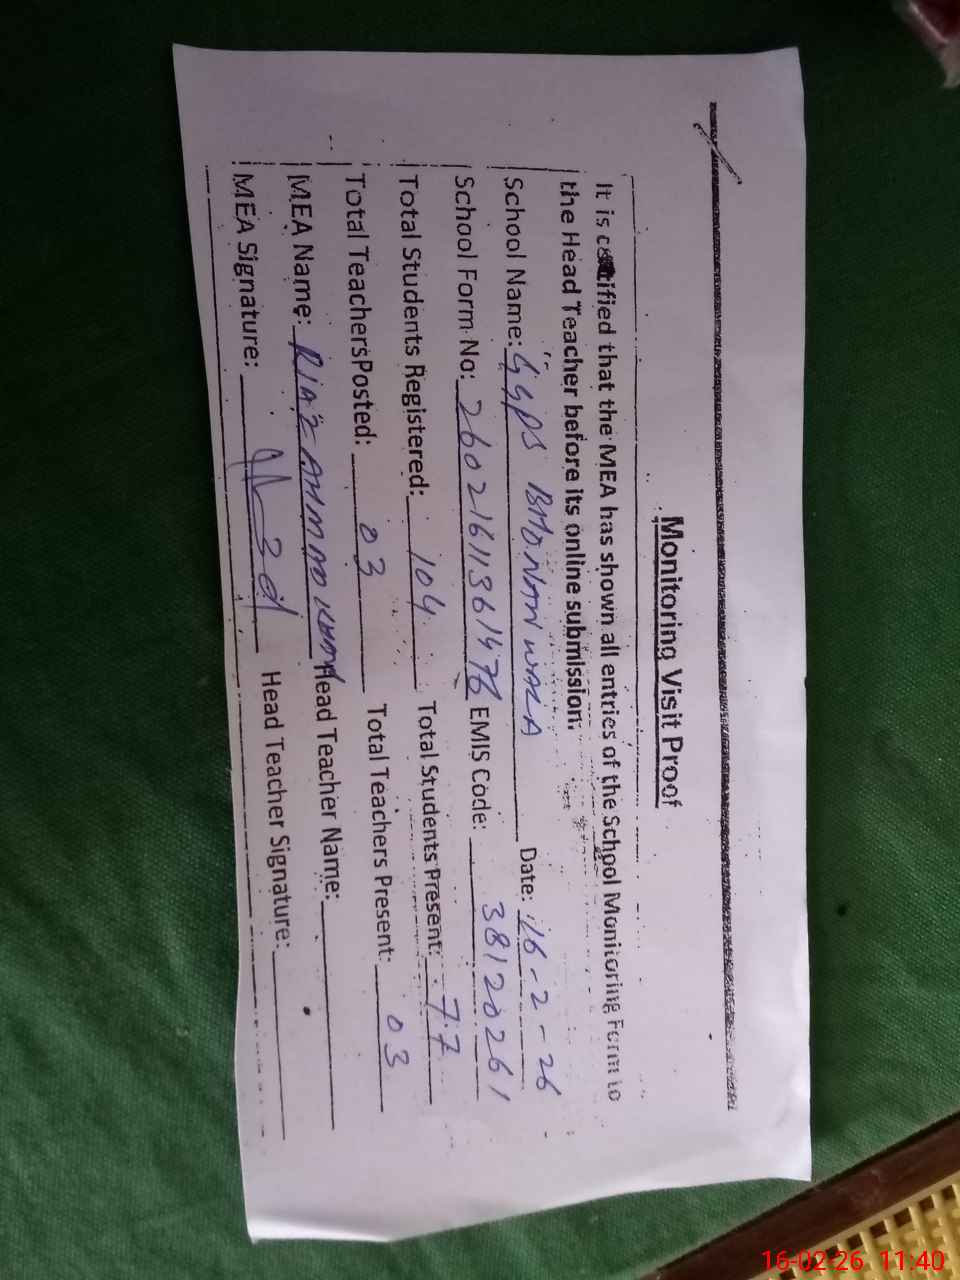 Monitoring Visit Proof
It is certified that the MEA has shown all entries of the School Monitoring Form to
the Head Teacher before its online submission.
School Name: GGPS BHO.NAN WALA Date: 16-2-26
School Form No: EMIS Code: 38120261
Total Students Registered: 104 Total Students Present: 77
Total Teachers Posted: 03 Total Teachers Present: 03
MEA Name: RIAZ AHMAD KHAN Head Teacher Name:
MEA Signature: Head Teacher Signature:
16-02-26 11:40